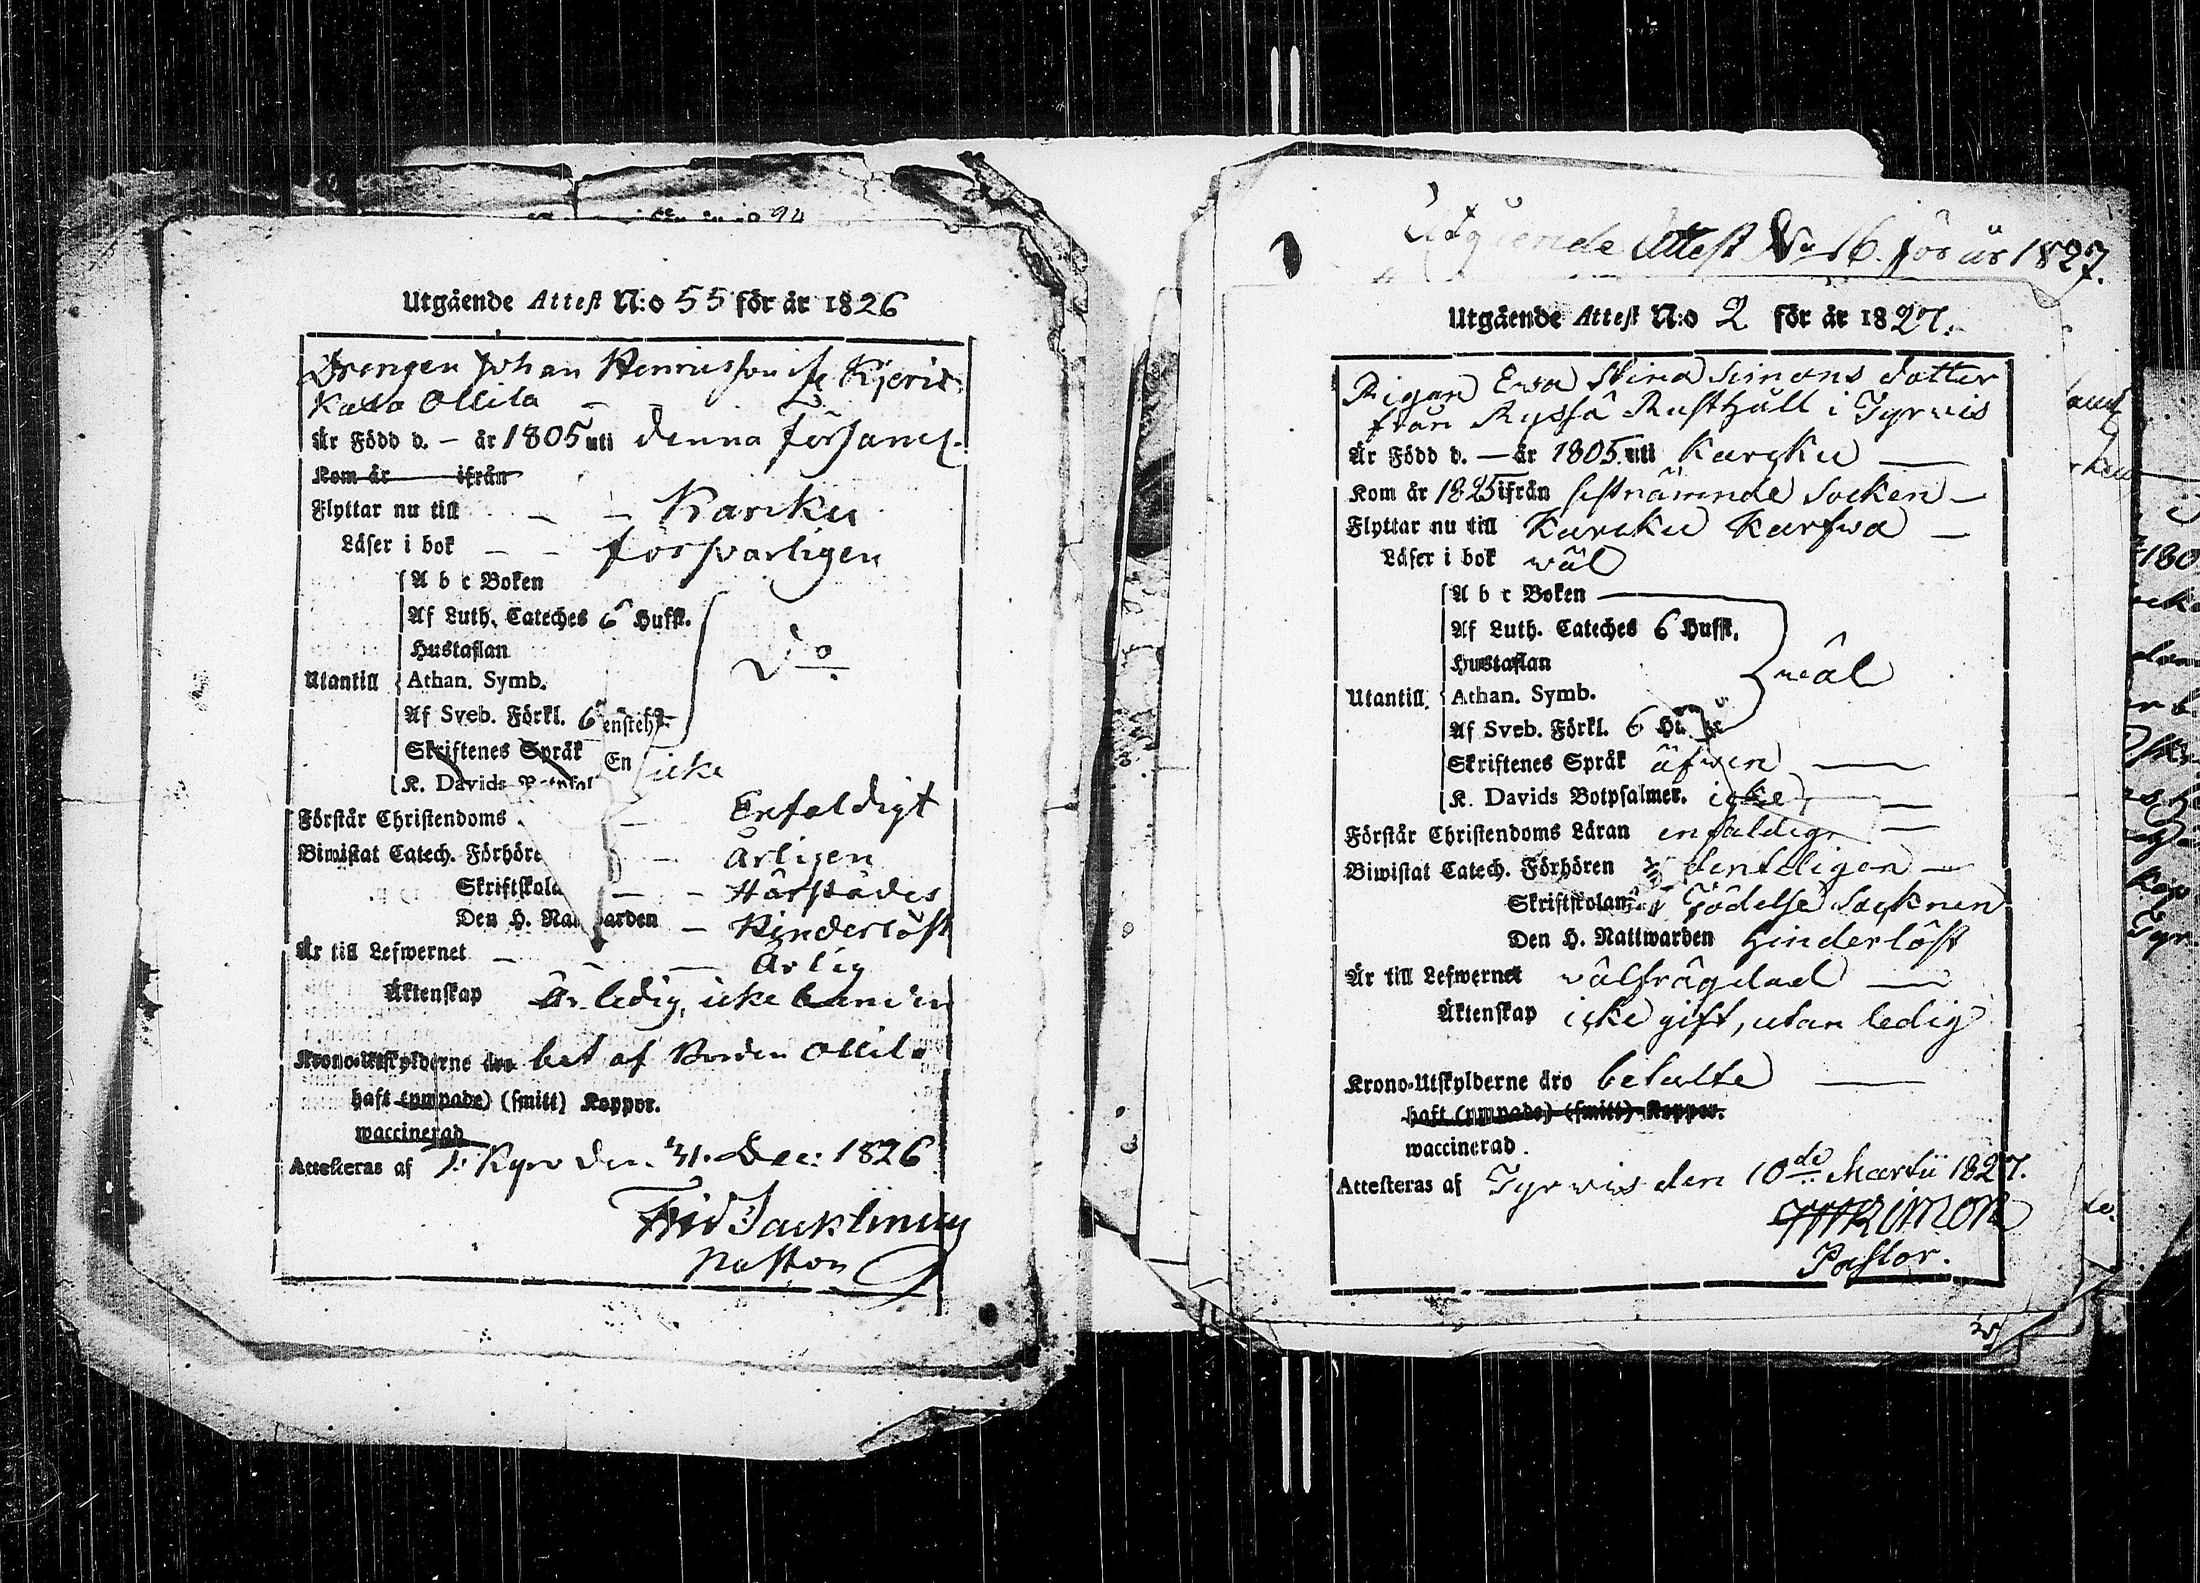 Utgående Attest N:o 55 för år 1826
Drengen Johan Henricsson ifr Kjeris
Kala Ollila –
Är Född d. – år 1805 uti denna församl.
Kom år ifrån
Flyttar nu till – – Karcku
Läser i bok – – försvarligen
A b c Boken
Af Luth. Cateches 6 Hufst.
Hustaflan
Do
Utantill Athan. Symb.
Af Sveb. Förkl. 6
Skriftenes Språk
icke
K. Davids
Förstår Christendoms – Enfaldigt
Biwistat Catech. Förhör – Årligen
Skriftskola – – Härstädes
Den H. Nattwarden – Hinderlöst
Är till Lefwernet – – – Ärlig
Äktenskap Är ledig, icke bunden
Krono-Utskylderne äro bet af Bonden Ollila
haft (ympade) (smitt) Koppor.
waccinerad
Attesteras af T. Kyro den 31. Dec: 1826
Pastor
Utgående Attest No 16. för år 1827.
Utgående Attest N:o 2 för år 1827.
Pigan Ewa Stina Simons dotter
från Ryssä Rusthåll i Tyrvis
Är Född d. – år 1805. uti Karcku –
Kom år 1825 ifrån sistnämnde Socken –
Flyttar nu till Karcku Karfwa –
Läser i bok wäl
A b c Boken
Af Luth. Cateches 6 Hufst.
Hustaflan
wäl
Utantill. Athan. Symb.
Af Sveb. Förkl. 6
Skriftenes Språk äfwen –
K. Davids Botpsalmer. icke –
Förstår Christendoms Läran enfaldigt –
Biwistat Catech. Förhören ordenteligen –
Skriftskolan i Födelse Socknen
Den H. Nattwarden hinderlöst
Är till Lefwernet wälfrägdad –
Äktenskap icke gift, utan ledig
Krono-Utskylderne äro betalte –
haft (ympade) (smitt) Koppor.
waccinerad.
Attesteras af Tyrvis den 10de Martii 1827.
Pastor.